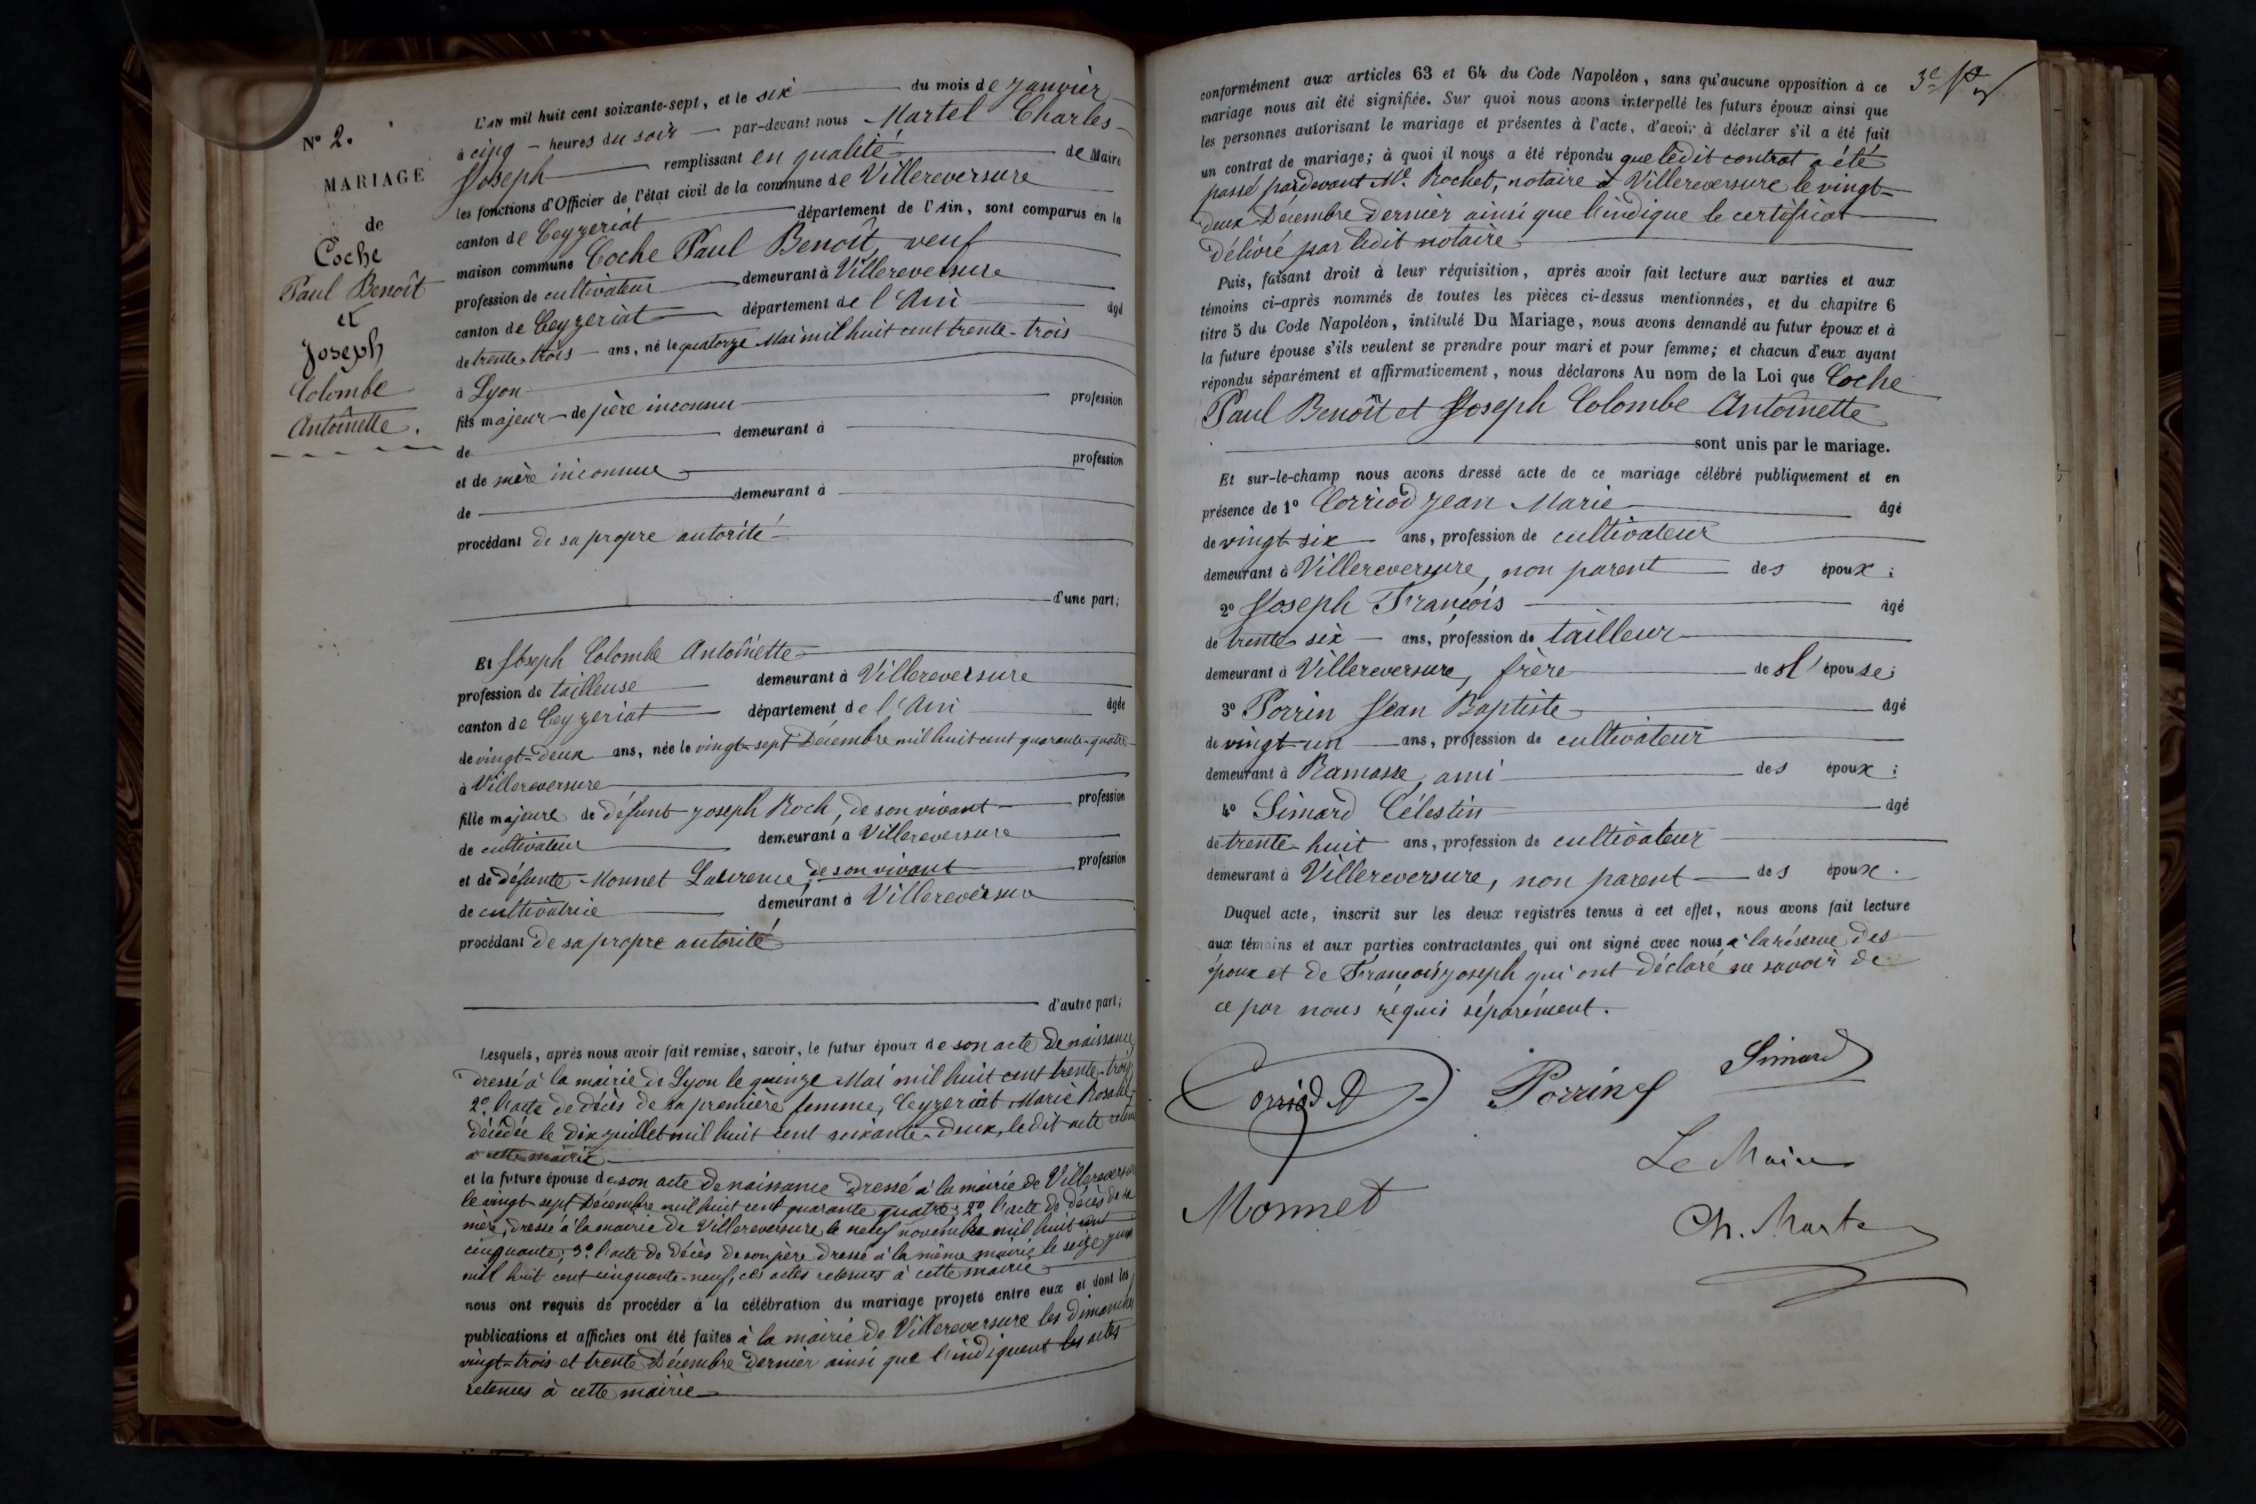 N° 2.
MARIAGE
de
Coche
Paul Benoît
et
Joseph
Colombe
Antoinette.
L'AN mil huit cent soixante-sept, et le six du mois de Janvier
à cinq heures du soir par-devant nous Martel Charles
Joseph remplissant en qualité de Maire
les fonctions d'Officier de l'état civil de la commune de Villereversure
canton de Ceyzeriat département de l'Ain, sont comparus en la
maison commune Coche Paul Benoît, veuf
profession de cultivateur demeurant à Villereversure
canton de Ceyzeriat département de l'Ain âgé
de trente-trois ans, né le quatorze Mai mil huit cent trente-trois
à Lyon
fils majeur de père inconnu profession
de demeurant à
et de mère inconnue profession
de demeurant à
procédant de sa propre autorité
d'une part;
Et Joseph Colombe Antoinette
profession de tailleuse demeurant à Villereversure
canton de Ceyzeriat département de l'Ain âgée
de vingt-deux ans, née le vingt-sept Décembre mil huit cent quarante-quatre
à Villereversure
fille majeure de défunt Joseph Roch, de son vivant profession
de cultivateur demeurant à Villereversure
et de défunte Monnet Laurence, de son vivant profession
de cultivatrice demeurant à Villereversure
procédant de sa propre autorité
d'autre part;
Lesquels, après nous avoir fait remise, savoir, le futur époux de son acte de naissance
dressé à la mairie de Lyon le quinze Mai mil huit cent trente-trois
2° l'acte de décès de sa première femme, Ceyzeriat Marie Rosalie
décédée le dix juillet mil huit cent soixante-deux, ledit acte retenu
à cette mairie
et la future épouse de son acte de naissance dressé à la mairie de Villereversure
le vingt-sept Décembre mil huit cent quarante quatre; 2° l'acte de décès de sa
mère, dressé à la mairie de Villereversure le neuf novembre mil huit cent
cinquante; 3° l'acte de décès de son père dressé à la même mairie le seize juin
mil huit cent cinquante-neuf, ces actes retenus à cette mairie
nous ont requis de procéder à la célébration du mariage projeté entre eux et dont les
publications et affiches ont été faites à la mairie de Villereversure les dimanches
vingt-trois et trente Décembre dernier ainsi que l'indiquent les actes
retenues à cette mairie
conformément aux articles 63 et 64 du Code Napoléon, sans qu'aucune opposition à ce
mariage nous ait été signifiée. Sur quoi nous avons interpellé les futurs époux ainsi que
les personnes autorisant le mariage et présentes à l'acte, d'avoir à déclarer s'il a été fait
un contrat de mariage; à quoi il nous a été répondu que ledit contrat a été
passé pardevant Me. Rochet, notaire à Villereversure le vingt-
deux Décembre dernier ainsi que l'indique le certificat
délivré par ledit notaire
Puis, faisant droit à leur réquisition, après avoir fait lecture aux parties et aux
témoins ci-après nommés de toutes les pièces ci-dessus mentionnées, et du chapitre 6
titre 5 du Code Napoléon, intitulé Du Mariage, nous avons demandé au futur époux et à
la future épouse s'ils veulent se prendre pour mari et pour femme; et chacun d'eux ayant
répondu séparément et affirmativement, nous déclarons Au nom de la Loi que Coche
Paul Benoît et Joseph Colombe Antoinette
sont unis par le mariage.
Et sur-le-champ nous avons dressé acte de ce mariage célébré publiquement et en
présence de 1° Corriod Jean Marie âgé
de vingt six ans, profession de cultivateur
demeurant à Villereversure, non parent des époux;
2° Joseph François âgé
de trente six ans, profession de tailleur
demeurant à Villereversure, frère de l'épouse;
3° Porrin Jean Baptiste âgé
de vingt-un ans, profession de cultivateur
demeurant à Ramasse, ami des époux;
4° Simard Célestin âgé
de trente-huit ans, profession de cultivateur
demeurant à Villereversure, non parent des époux.
Duquel acte, inscrit sur les deux registres tenus à cet effet, nous avons fait lecture
aux témoins et aux parties contractantes qui ont signé avec nous à la réserve des
époux et de François Joseph qui ont déclaré ne savoir de
ce par nous requis séparément.
Corriod
Porrin
Simard
Monnet
Le Maire
Ch. Martel